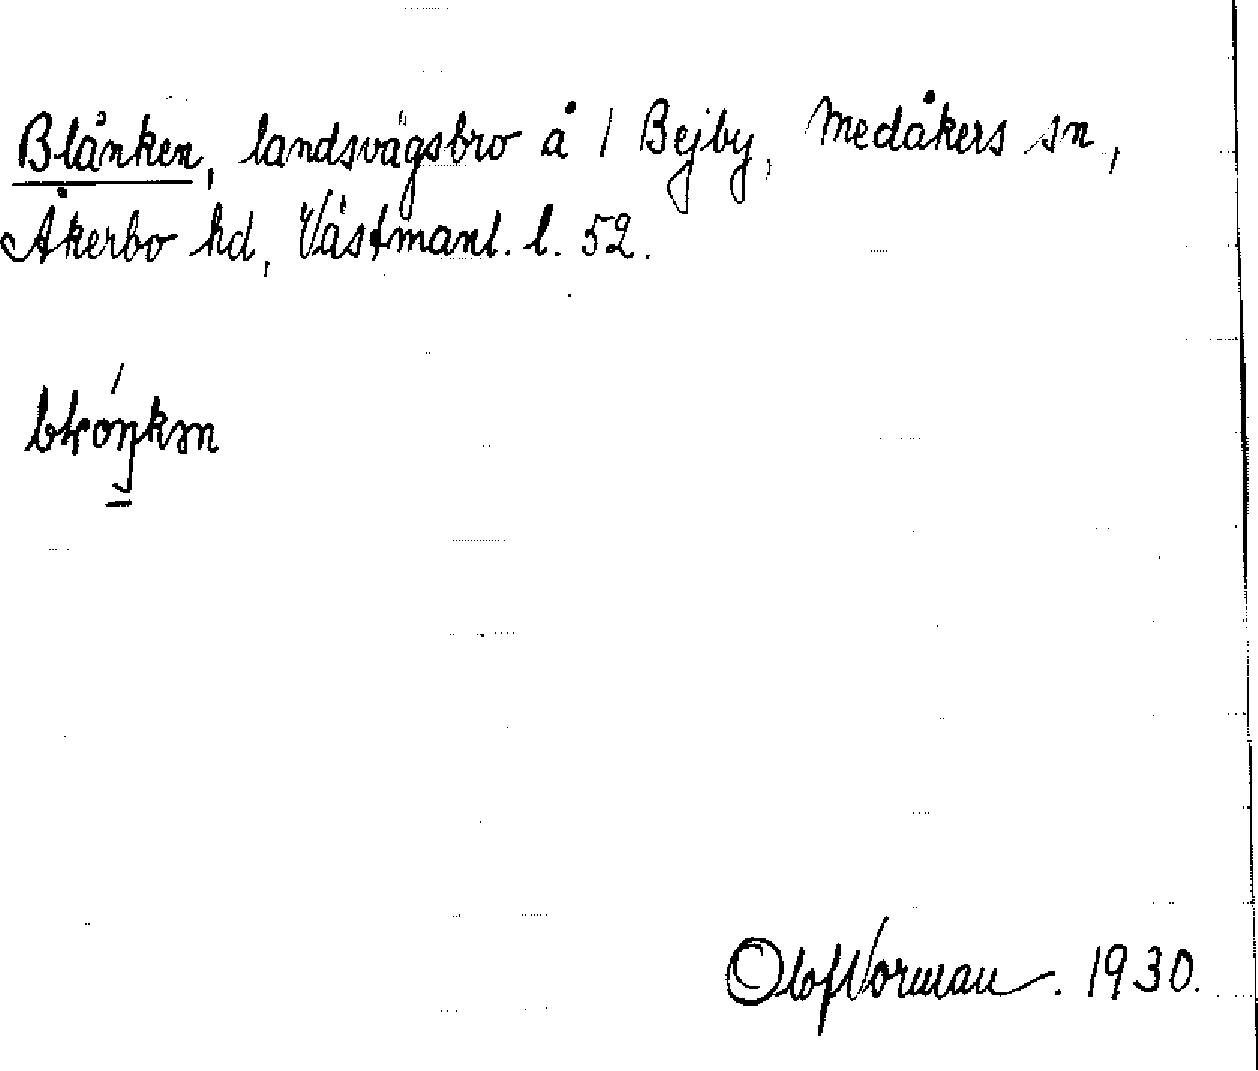 Blånken, landsvägsbro å 1 Bejby, Medåkers sn,
Åkerbo hd, Västmanl. l. 52.
Olof Norman. 1930.